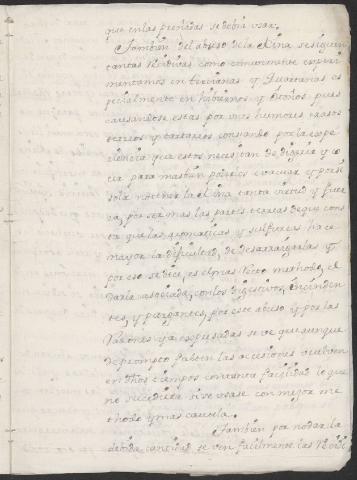 que en las preñadas se debia usar.
Tambien del abuso de la Kina se siguen
tantas Recidivas como comunmente experi
mentamos en tercianas y Quartanas es
pecialmente en hibiernos y otoños pues
causandose estas por unos humores crasos
terreos y tartareos constando por la expe
riencia que estos necesitan de digerir y
para mas bien poderlos evacuar y por si
sola no tener la Kina tanta virtud y fuer
za, por ser mas las partes terreas de que cons
ta que las aromaticas y sulfureas hace
mayor la dificultad, de desarraigarlas y
por eso se dice, es el mas recto methodo, el
darla asociada, con los digestivos, Incinden
tes, y purgantes, por este abuso y por las
Razones ya expresadas se ve que aunque
de prompto falten las accesiones vuelven
en dhos tiempos con tanta facilidad lo que
no sucediera si se usase con mejor me
thodo y mas cautela.
Tambien por no dar la
debida cantidad se ven facilmente las Recidi